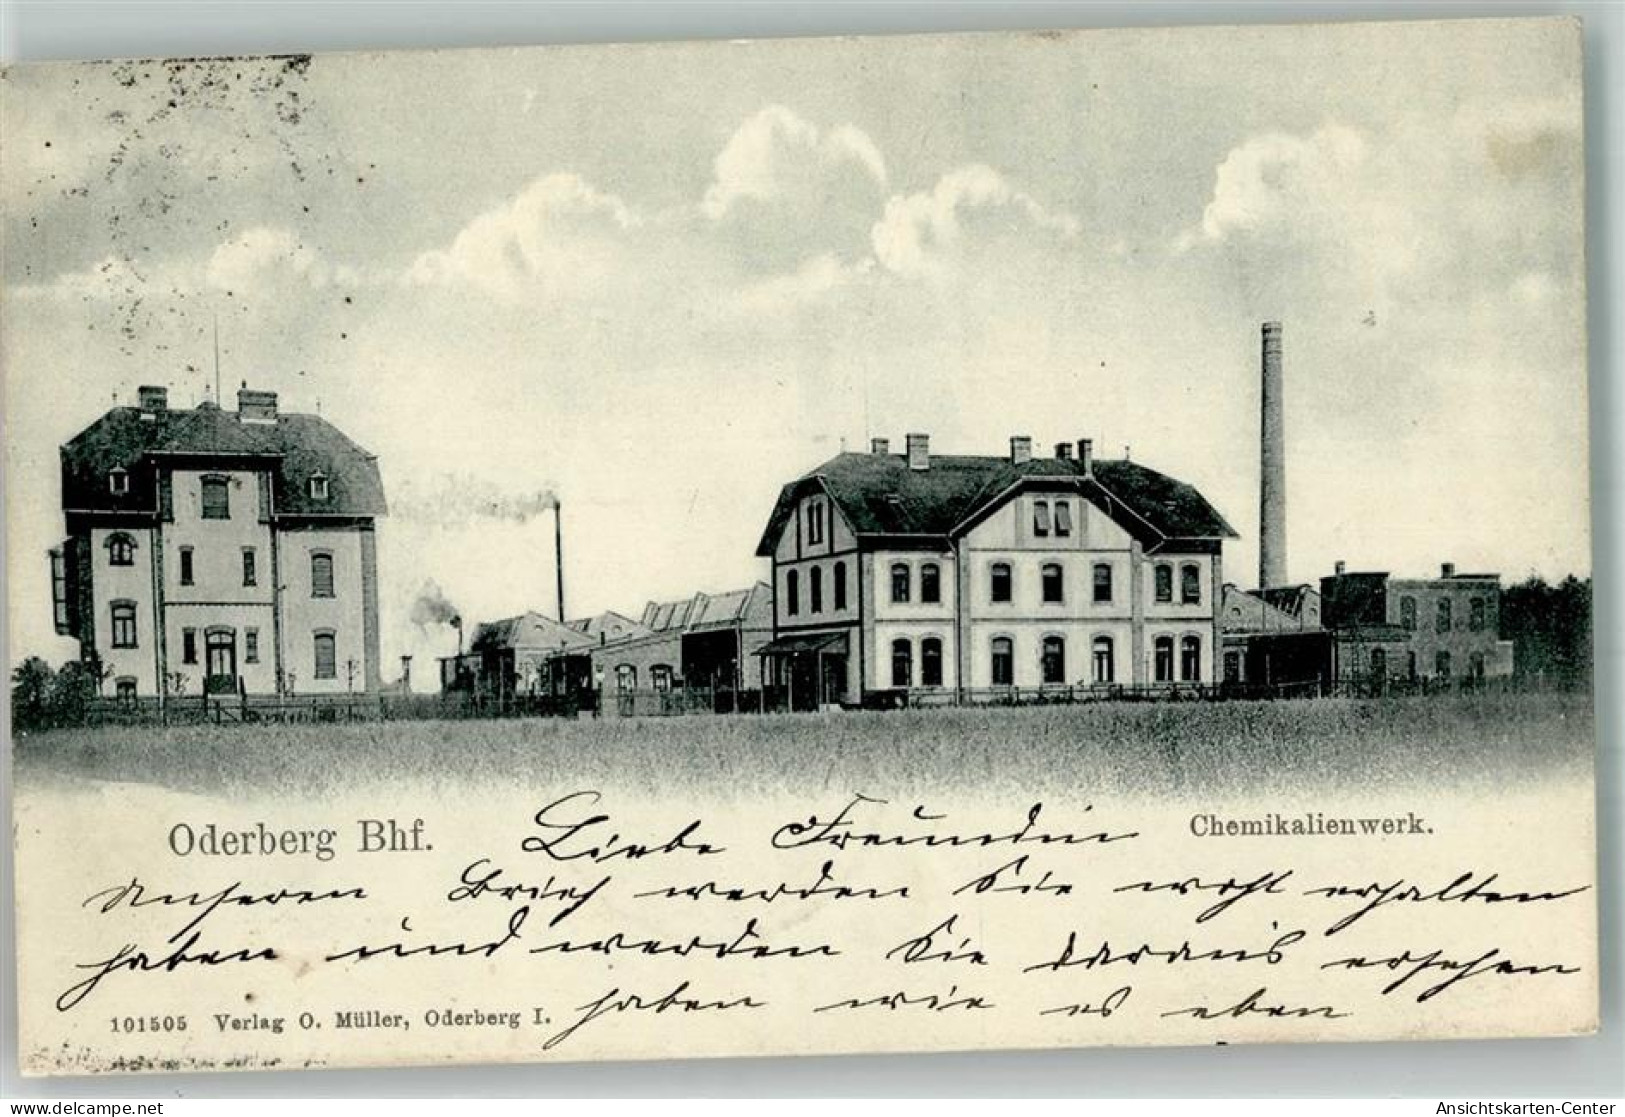 Oderberg Bhf.
Liebe Freundin
Chemikalienwerk.
Unseren Brief werden Sie wohl erhalten
haben und werden Sie daraus ersehen
haben wie es eben
101505 Verlag O. Müller, Oderberg I.
www.delcampe.net
Ansichtskarten-Center